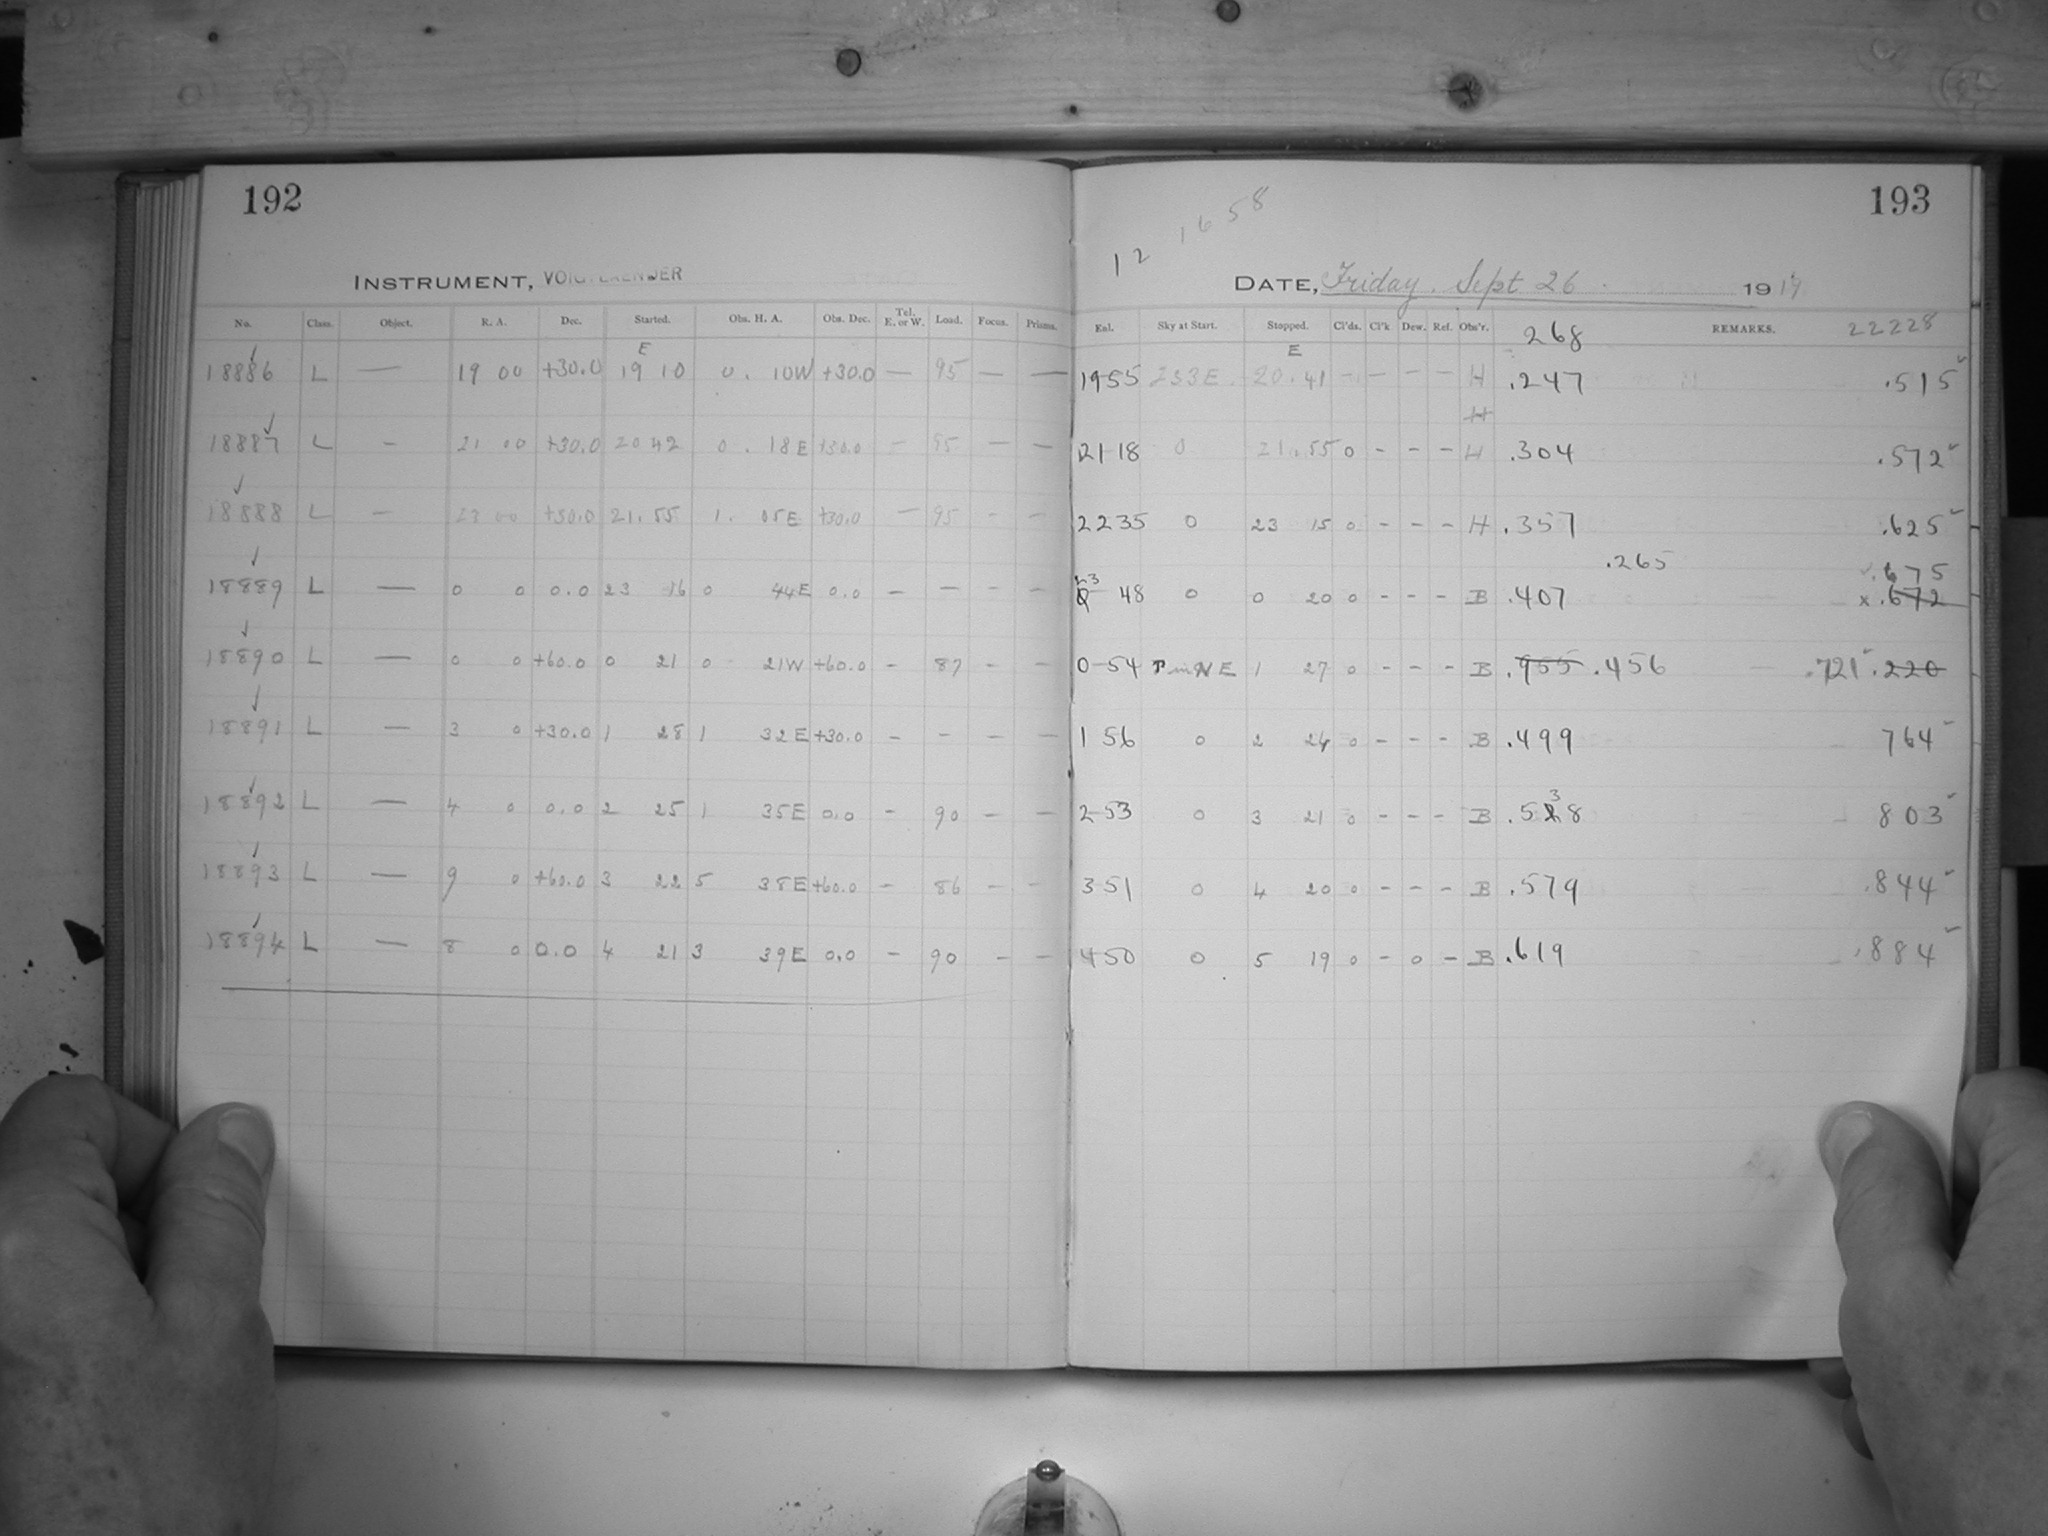 192
INSTRUMENT, VOIGTLAENDER
No. Class. Object. R. A. Dec. Started. Obs. H. A. Obs. Dec. Tel. E. or W. Load. Focus. Prisms.
E
18886 L — 19 00 +30.0 19 10 0. 10W +30.0 — 95 — —
18887 L - 21 00 +30.0 20 42 0. 18E +30.0 - 95 — —
18888 L - 23 00 +30.0 21.55 1. 05E +30.0 — 95 - -
18889 L — 0 0 0.0 23 16 0 44E 0.0 - - - -
18890 L — 0 0 +60.0 0 21 0 21W +60.0 - 87 - -
18891 L — 3 0 +30.0 1 28 1 32E +30.0 - - - -
18892 L — 4 0 0.0 2 25 1 35E 0.0 - 90 - -
18893 L — 9 0 +60.0 3 22 5 38E +60.0 - 86 - -
18894 L — 8 0 0.0 4 21 3 39E 0.0 - 90 - -
193
12 1658
DATE, Friday. Sept 26. 1919
Enl. Sky at Start. Stopped. Cl'ds. Cl'k Dew. Ref. Obs'r. 268 REMARKS. 22228
E
1955 233E. 20.41 - - - - H .247 .515
H
2118 0 21.55 0 - - - H .304 .572
2235 0 23 15 0 - - - H .357 .625
.265 .675
23 48 0 0 20 0 - - - B .407 x .672
0 54 P in NE 1 27 0 - - - B .955 .456 .721 .220
1 56 0 2 24 0 - - - B .499 764
2 53 0 3 21 0 - - - B .538 803
3 51 0 4 20 0 - - - B .579 .844
4 50 0 5 19 0 - 0 - B .619 .884